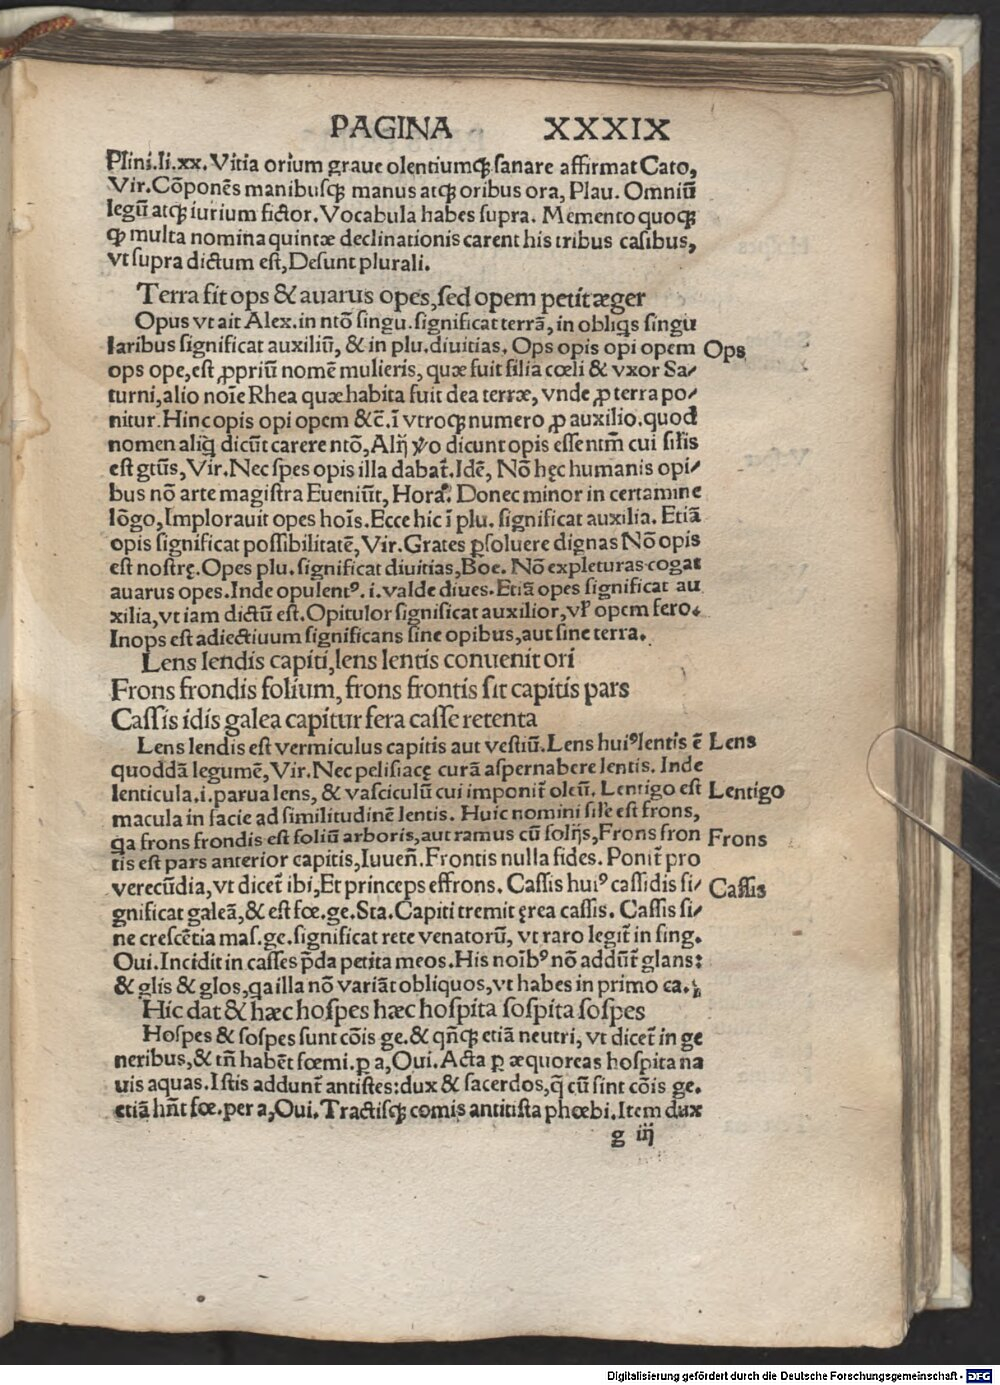 PAGINA XXXIX
Plini.li.xx.Vitia orium graue olentiumqꝫ sanare affirmat Cato,
Vir.Cōponēs manibusqꝫ manus atqꝫ oribus ora, Plau. Omniū
legū atqꝫ iurium fictor.Vocabula habes supra. Memento quoqꝫ
ꝙ multa nomina quintæ declinationis carent his tribus casibus,
vt supra dictum est,Desunt plurali.
Terra fit ops & auarus opes,sed opem petit æger
Opus vt ait Alex.in ntō singu.significat terrā,in obliqs singu
laribus significat auxiliū, & in plu.diuitias. Ops opis opi opem Ops
ops ope,est ꝓpriū nomē mulieris, quæ fuit filia cœli & vxor Sa/
turni,alio noīe Rhea quæ habita fuit dea terræ, vnde ꝓ terra po/
nitur.Hinc opis opi opem &c̄.ī vtroqꝫ numero ꝓ auxilio.quod
nomen aliq̄ dicūt carere ntō,Alij ꝟo dicunt opis esse ntm̄ cui sil̄is
est gtūs,Vir.Nec spes opis illa dabat̄.Idē, Nō hęc humanis opi/
bus nō arte magistra Eueniūt, Hora. Donec minor in certamine
lōgo,Implorauit opes hoīs.Ecce hic ī plu. significat auxilia. Etiā
opis significat possibilitatē,Vir.Grates ꝑsoluere dignas Nō opis
est nostrę.Opes plu.significat diuitias,Boe. Nō expleturas cogat
auarus opes.Inde opulentꝰ.i.valde diues.Etiā opes significat au
xilia,vt iam dictū est.Opitulor significat auxilior,vl̄ opem fero.
Inops est adiectiuum significans sine opibus,aut sine terra.
Lens lendis capiti,lens lentis conuenit ori
Frons frondis folium, frons frontis sit capitis pars
Cassis idis galea capitur fera casse retenta
Lens lendis est vermiculus capitis aut vestiū.Lens huiꝰ lentis ē Lens
quoddā legumē,Vir.Nec pelisiacę curā aspernabere lentis. Inde
lenticula.i.parua lens, & vasciculū cui imponit̄ oleū. Lentigo est Lentigo
macula in facie ad similitudinē lentis. Huic nomini sil̄e est frons,
qa frons frondis est foliū arboris,aut ramus cū folijs,Frons fron Frons
tis est pars anterior capitis,Iuuen̄.Frontis nulla fides. Ponit̄ pro
verecūdia,vt dicet̄ ibi,Et princeps effrons. Cassis huiꝰ cassidis si/ Cassis
gnificat galeā,& est fœ.ge.Sta.Capiti tremit ęrea cassis. Cassis si/
ne crescētia mas.ge.significat rete venatorū, vt raro legit̄ in sing.
Oui.Incidit in casses p̄da petita meos.His noībꝰ nō addūt̄ glans:
& glis & glos,qa illa nō variāt obliquos,vt habes in primo ca.
Hic dat & hæc hospes hæc hospita sospita sospes
Hospes & sospes sunt cōis ge.& qn̄qꝫ etiā neutri, vt dicet̄ in ge
neribus,& tn̄ habēt fœmi.ꝑ a,Oui. Acta ꝑ æquoreas hospita na
uis aquas.Istis addunt̄ antistes:dux & sacerdos,q̄ cū sint cōis ge.
etiā hn̄t fœ.per a,Oui.Tractisqꝫ comis antitista phœbi.Item dux
g iij
Digitalisierung gefördert durch die Deutsche Forschungsgemeinschaft - DFG